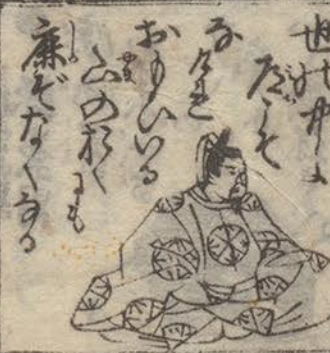 世の中よ
道こそ
なけれ
おもひいる
山のおくにも
鹿ぞなくなる